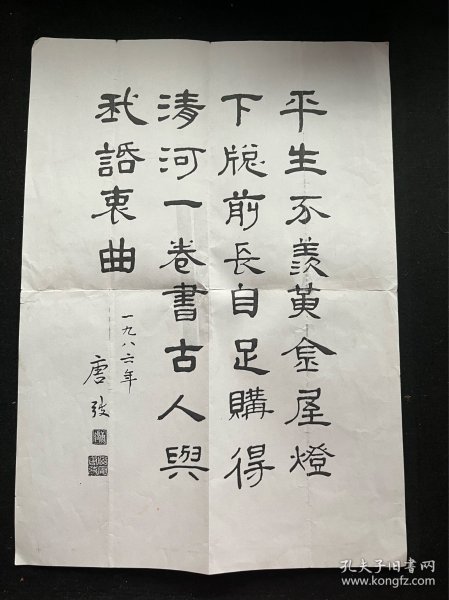 平生不羨黃金屋燈
下牕前長自足購得
清河一卷書古人與
我話衷曲
一九八六年
唐弢
孔夫子旧书网
www.kongfz.com